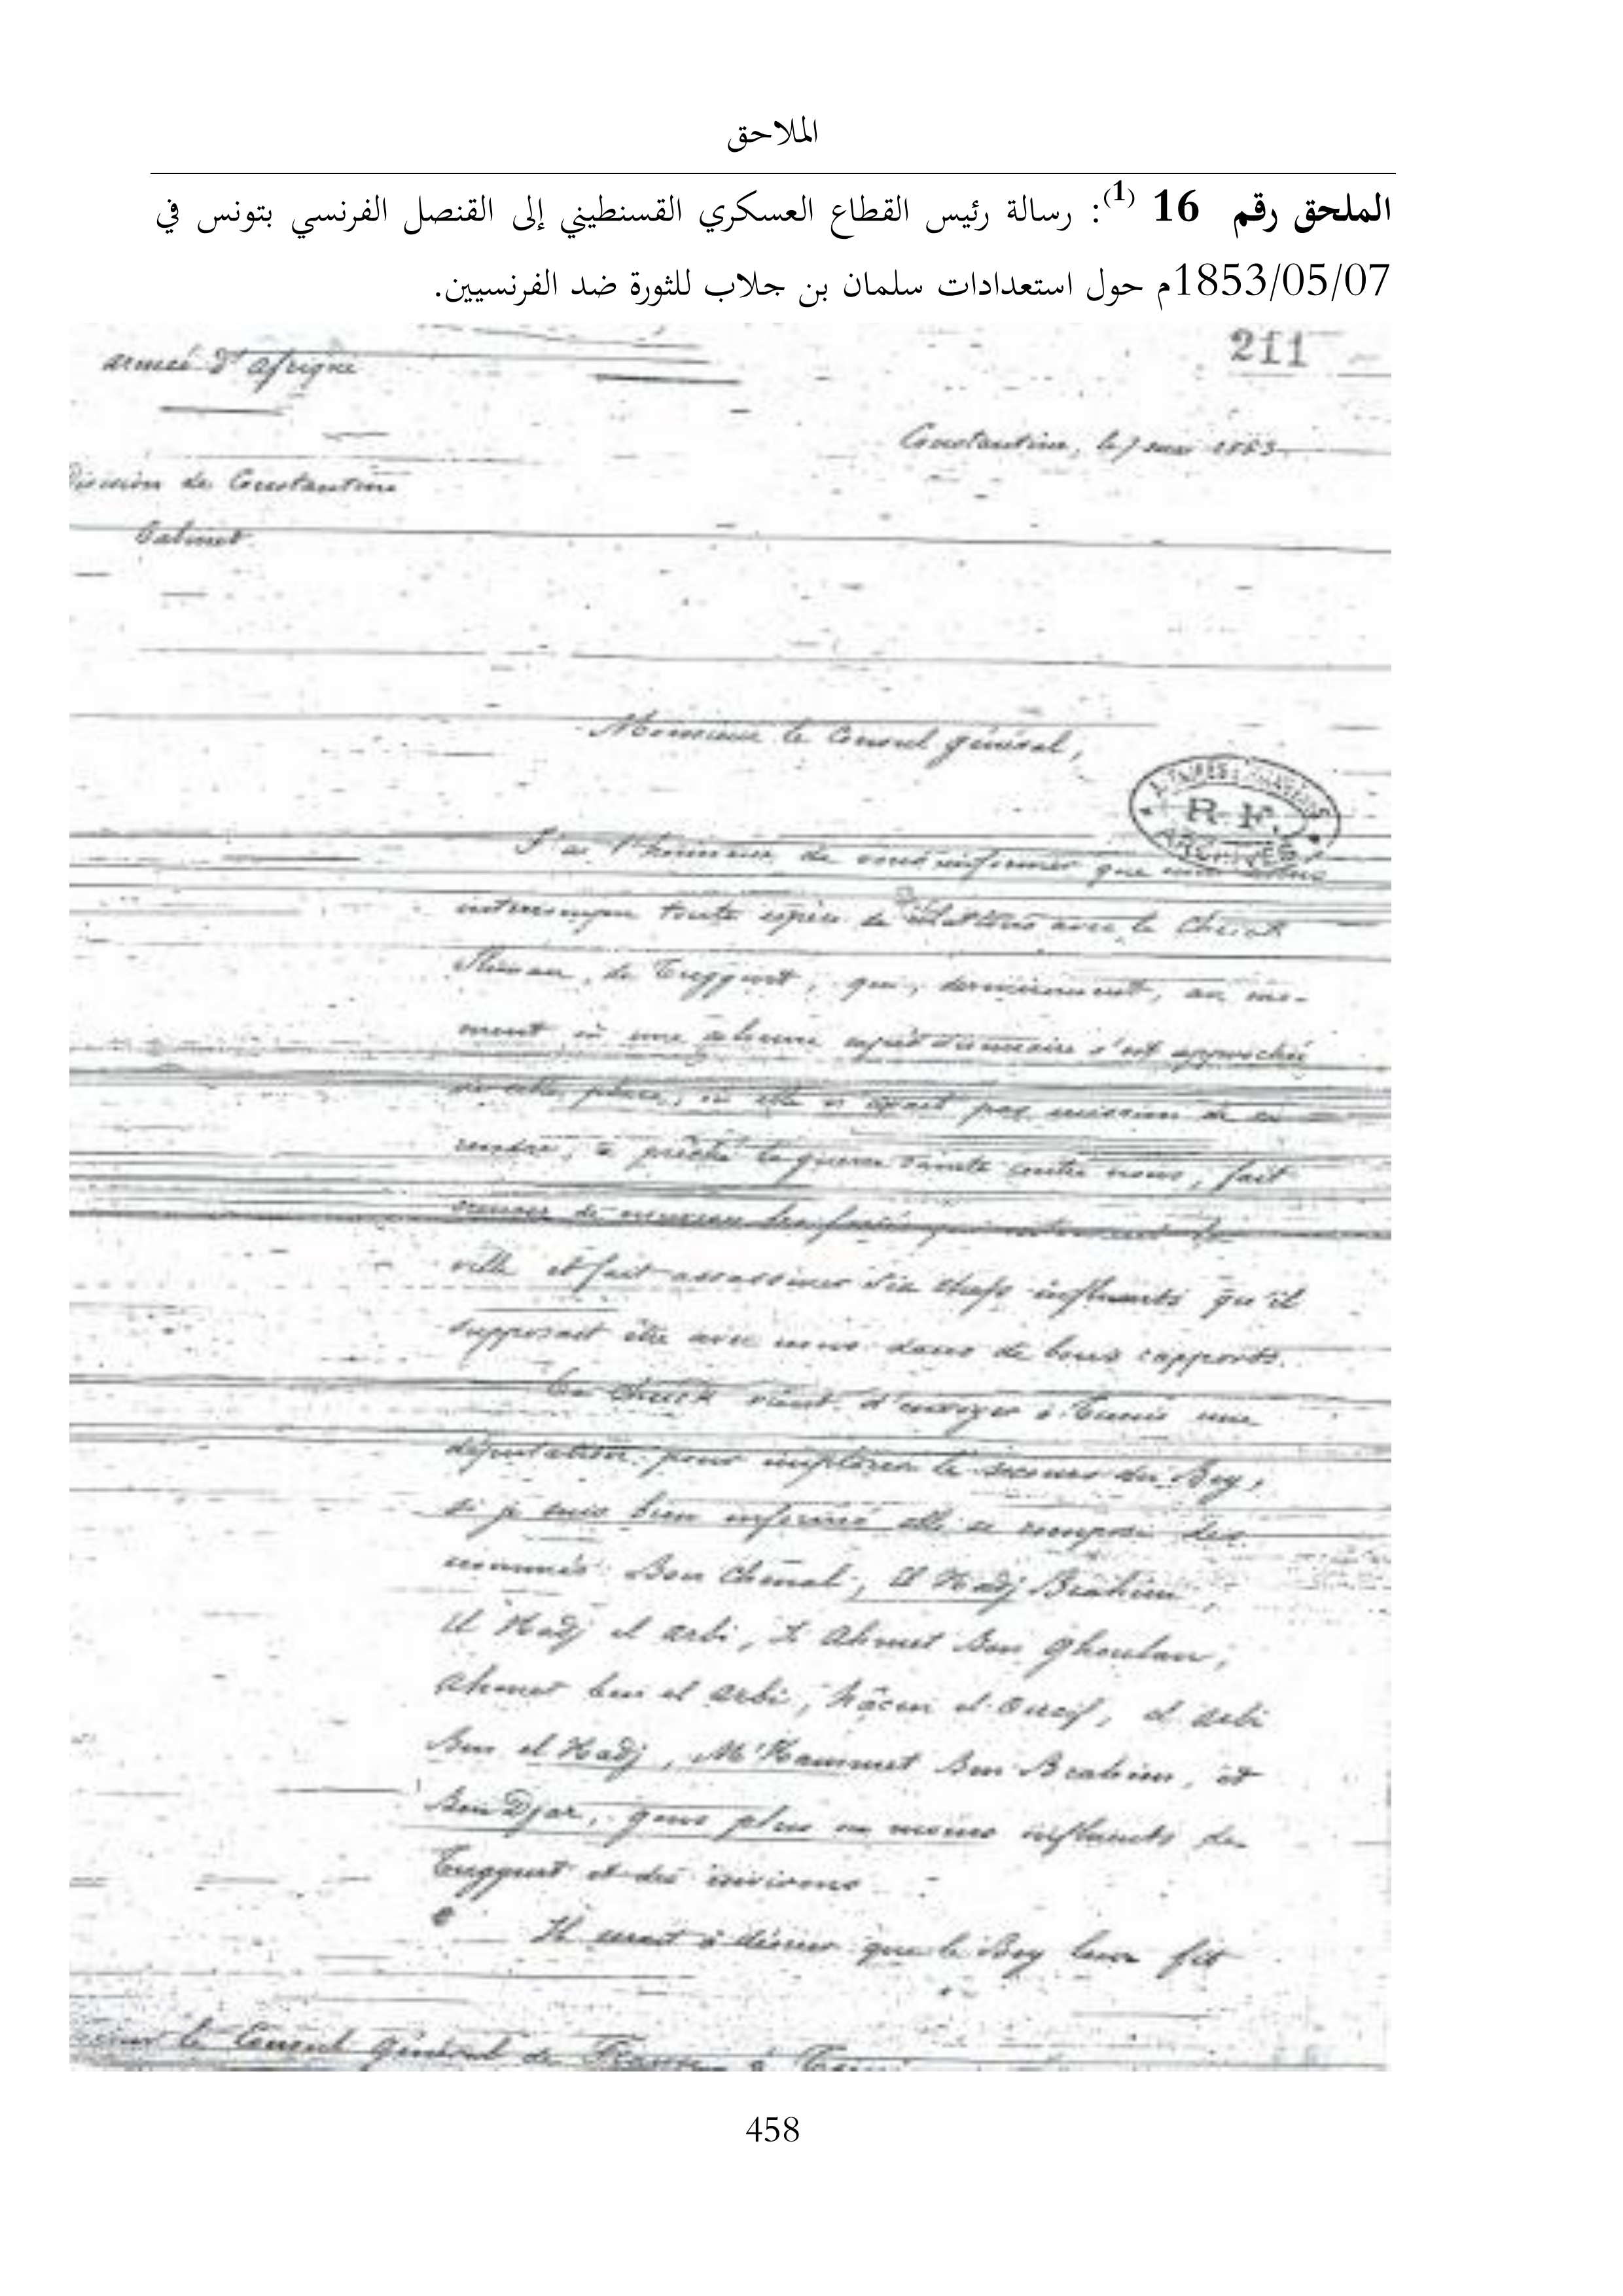 الملاحق
الملحق رقم 16 (1): رسالة رئيس القطاع العسكري القسنطيني إلى القنصل الفرنسي بتونس في
1853/05/07م حول استعدادات سلمان بن جلاب للثورة ضد الفرنسيين.
211
armée d'afrique
Constantine, le 7 mai 1853
Division de Constantine
Cabinet
Monsieur le Consul général,
R. F.
ARCHIVES
J'ai l'honneur de vous informer que
interrompu toute espèce de relations avec le Cheick
Sliman, de Tuggurt, qui, dernièrement, au mo-
ment où une colonne s'est approchée
de cette place, où elle n'avait pas mission de se
rendre, a prêché la guerre sainte contre nous, fait
creuser de nouveau les fossés qui entourent la
ville et fait assassiner dix chefs influents qu'il
supposait être avec nous dans de bons rapports.
Ce Cheick vient d'envoyer à Tunis une
députation pour implorer le secours du Bey,
si je suis bien informé elle se compose des
nommés Ben Chemal, El Hadj Brahim,
El Hadj el arbi, Si Ahmet Ben Ghoulan,
Ahmet ben el arbi, el arbi
Ben el Hadj, M'Hammet Ben Brahim, et
Ben Djar, gens plus ou moins influents de
Tuggurt et des environs
Il serait à désirer que le Bey leur fit
le Consul général de France à Tunis
458